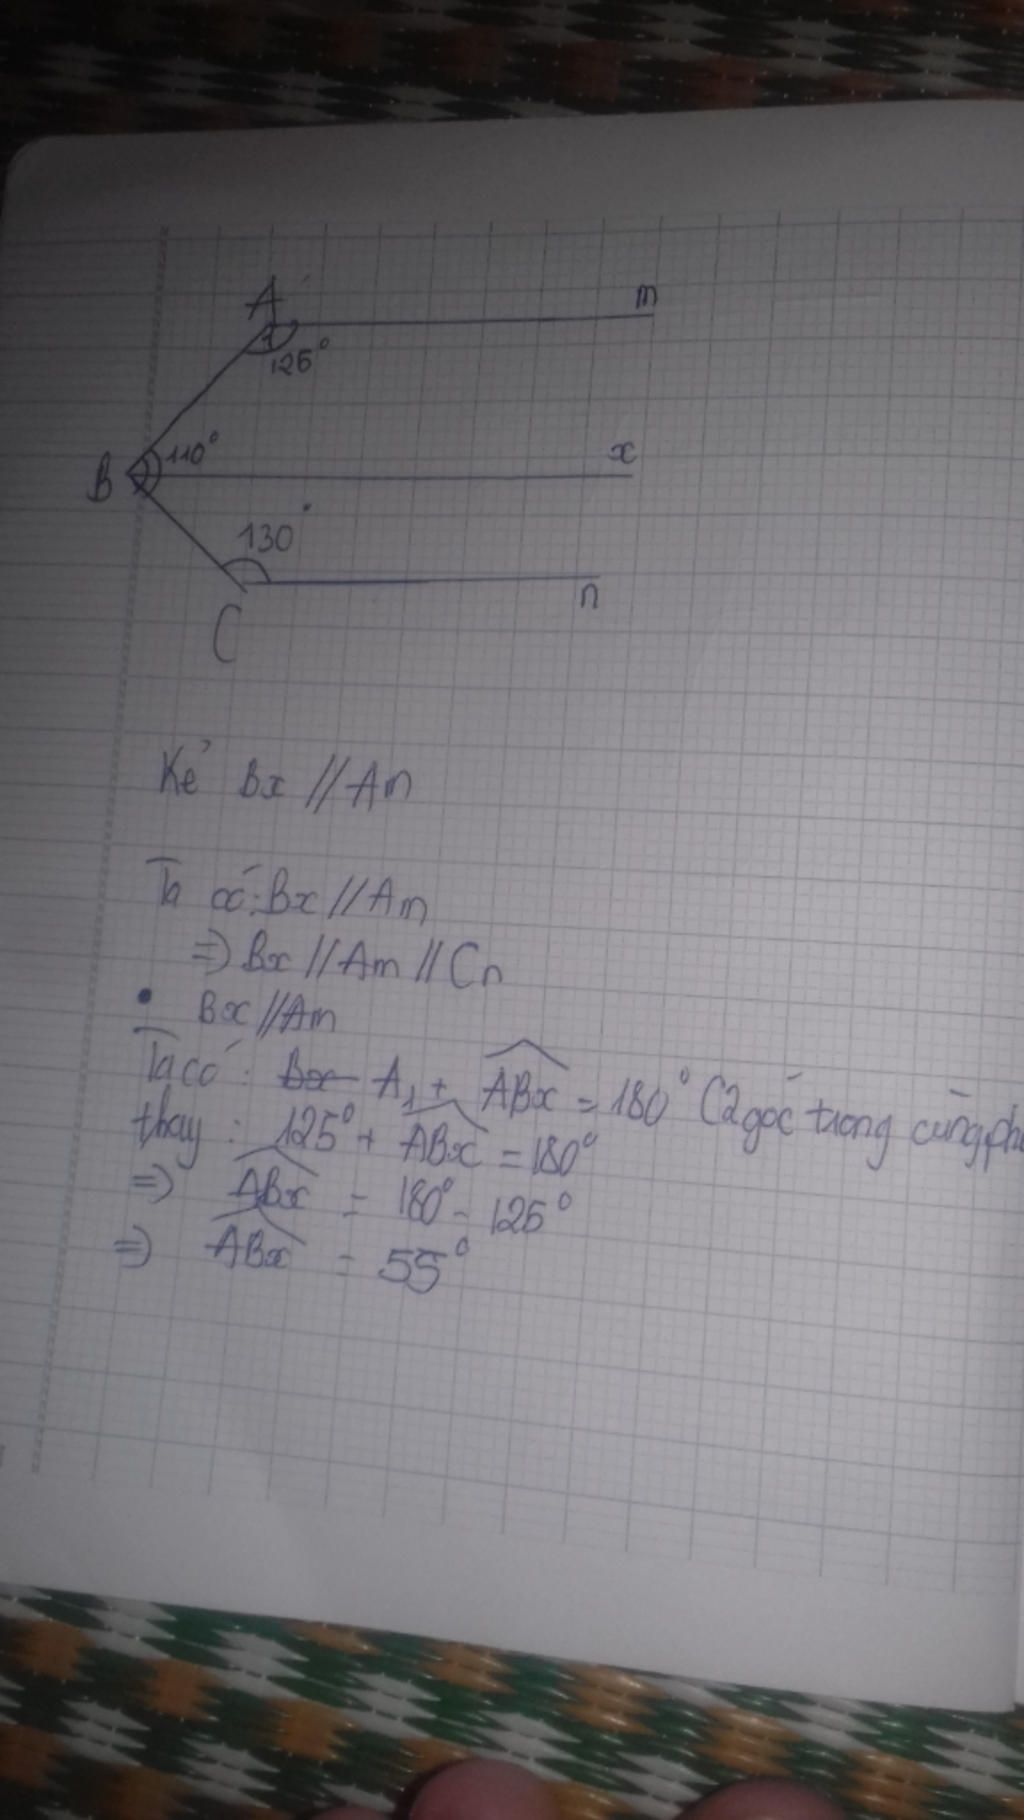 A
m
1
125°
B
110°
x
130°
C
n
Kẻ Bx // Am
Ta có: Bx // Am
=> Bx // Am // Cn
• Bx // Am
Ta có: Bx A₁ + ABx = 180° (2 góc trong cùng
thay: 125° + ABx = 180°
=> ABx = 180° - 125°
=> ABx = 55°